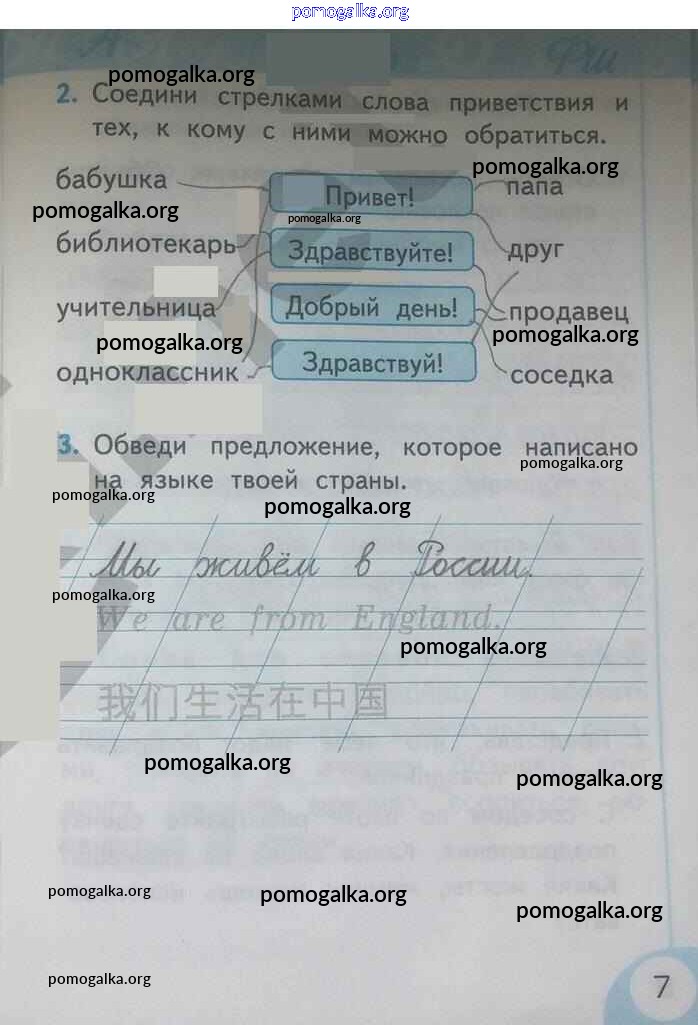 pomogalka.org
pomogalka.org
2. Соедини стрелками слова приветствия и
тех, к кому с ними можно обратиться.
pomogalka.org
бабушка Привет! папа
pomogalka.org
pomogalka.org
библиотекарь Здравствуйте! друг
учительница Добрый день! продавец
pomogalka.org
pomogalka.org
одноклассник Здравствуй! соседка
3. Обведи предложение, которое написано
pomogalka.org
на языке твоей страны.
pomogalka.org
pomogalka.org
Мы живём в России.
pomogalka.org
We are from England.
pomogalka.org
我们生活在中国
pomogalka.org
pomogalka.org
pomogalka.org
pomogalka.org
pomogalka.org
pomogalka.org
7